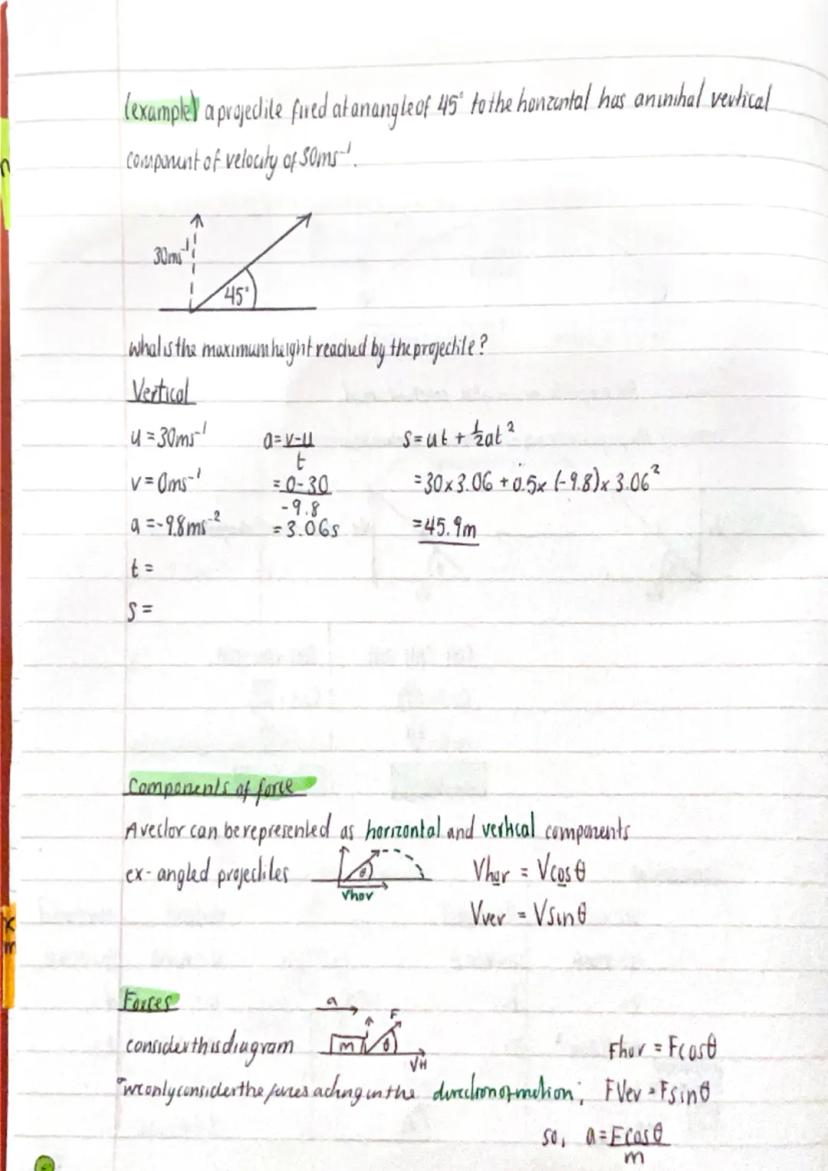 (example) a projectile fired at an angle of 45° to the horizontal has an inihal vertical
component of velocity of 30ms⁻¹.
30ms⁻¹
45°
what is the maximum height reached by the projectile?
Vertical
u = 30ms⁻¹ a = v-u/t s = ut + ½at²
v = 0ms⁻¹ = 0-30/-9.8 = 30 x 3.06 + 0.5 x (-9.8) x 3.06²
a = -9.8ms⁻² = 3.06s = 45.9m
t =
s =
Components of force
A vector can be represented as horizontal and vertical components
ex - angled projectiles θ Vhor = Vcosθ
Vhor Vver = Vsinθ
Forces a F
consider this diagram m θ Fhor = Fcosθ
VH
we only consider the forces acting in the direction of motion; FVer = Fsinθ
so, a = Fcosθ/m